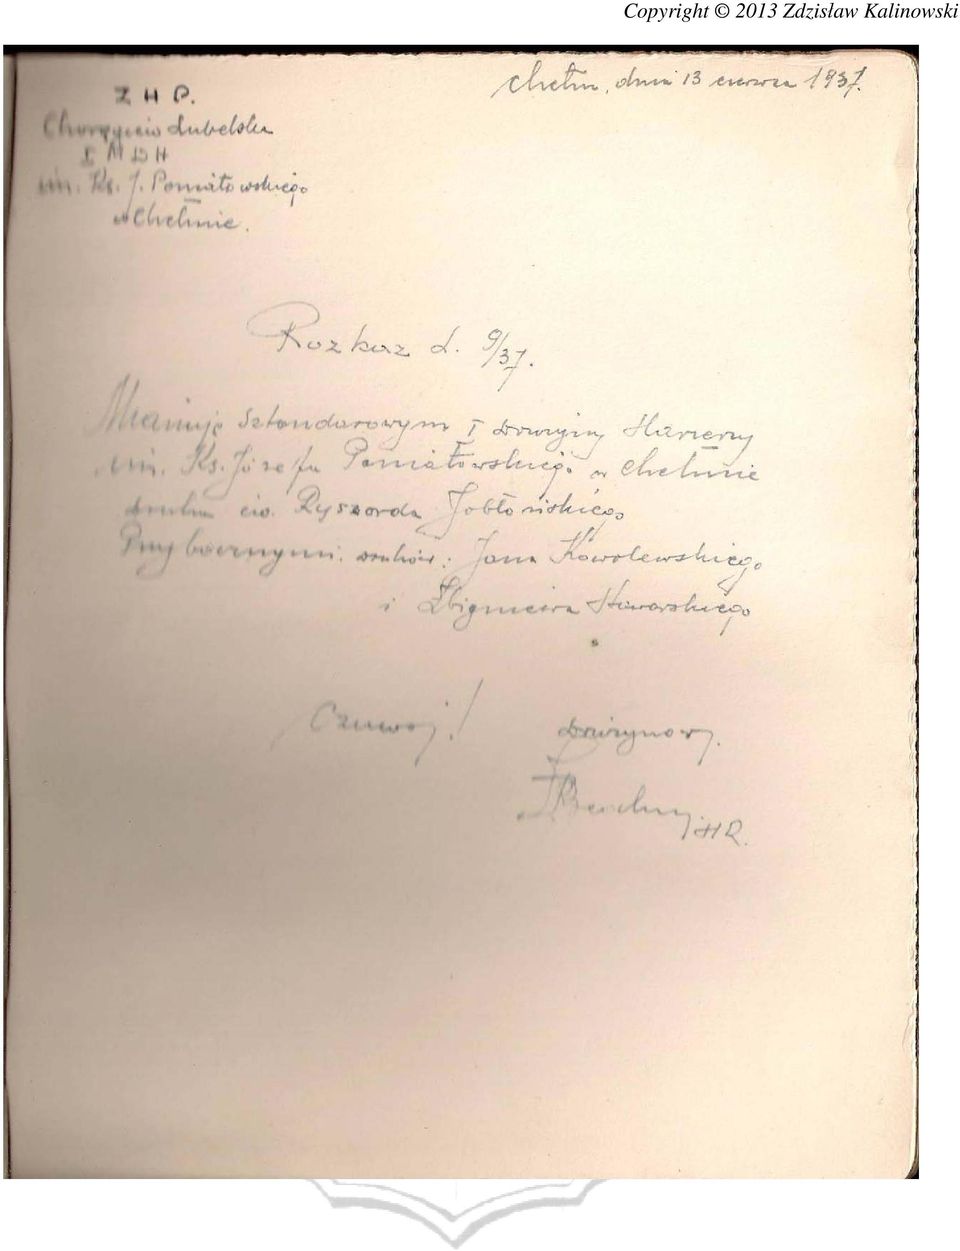 Copyright © 2013 Zdzisław Kalinowski
Chełm, dnia 13 czerwca 1937.
Z H P.
Chorągiew Lubelska
I M D H
im. Ks. J. Poniatowskiego
w Chełmie.
Rozkaz L. 9/37.
Mianuję Sztandarowym I Drużyny Harcerzy
im. Ks. Józefa Poniatowskiego w Chełmie
druha ćw. Ryszarda Jabłońskiego
Przybocznymi: druhów: Jana Kowalewskiego
i Zbigniewa
Czuwaj!
Drużynowy.
HR.